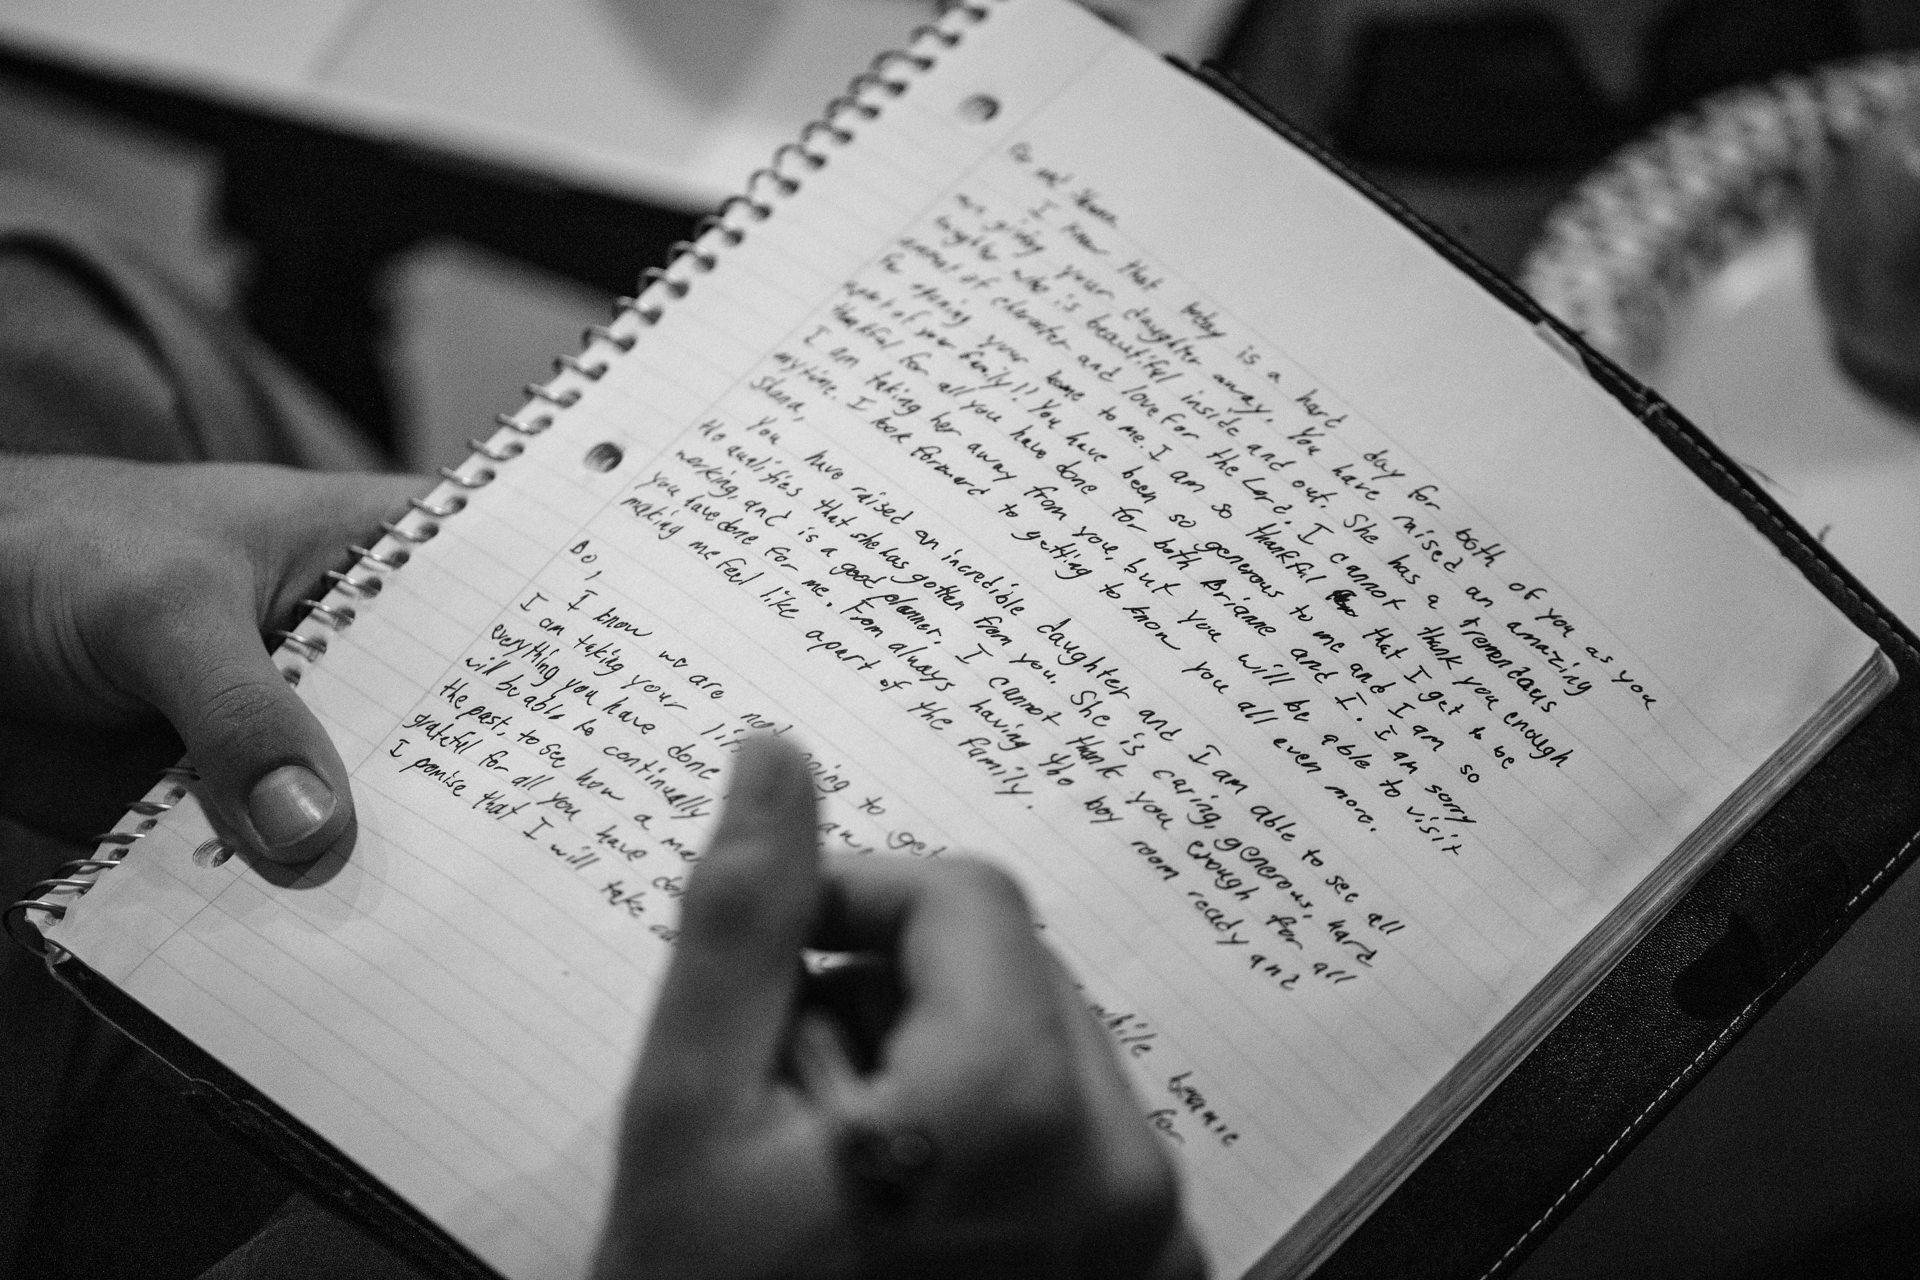 I know that today is a hard day for both of you as you
are giving your daughter away. You have raised an amazing
daughter who is beautiful inside and out. She has a tremendous
amount of character and love for the Lord. I cannot thank you enough
for opening your home to me. I am so thankful that I get to be
apart of your family!! You have been so generous to me and I am so
thankful for all you have done for both Brianne and I. I am sorry
I am taking her away from you, but you will be able to visit
mytime. I look forward to getting to know you all even more.
You have raised an incredible daughter and I am able to see all
qualities that she has gotten from you. She is caring, generous, hard
working, and is a good planner. I cannot thank you enough for all
you have done for me. From always having the boy room ready and
making me feel like apart of the family.
Bo,
I know we are not going to get while because
I am taking your for
everything you have done
will be able to continually
the past, to see how a
grateful for all you have
I promise that I will take